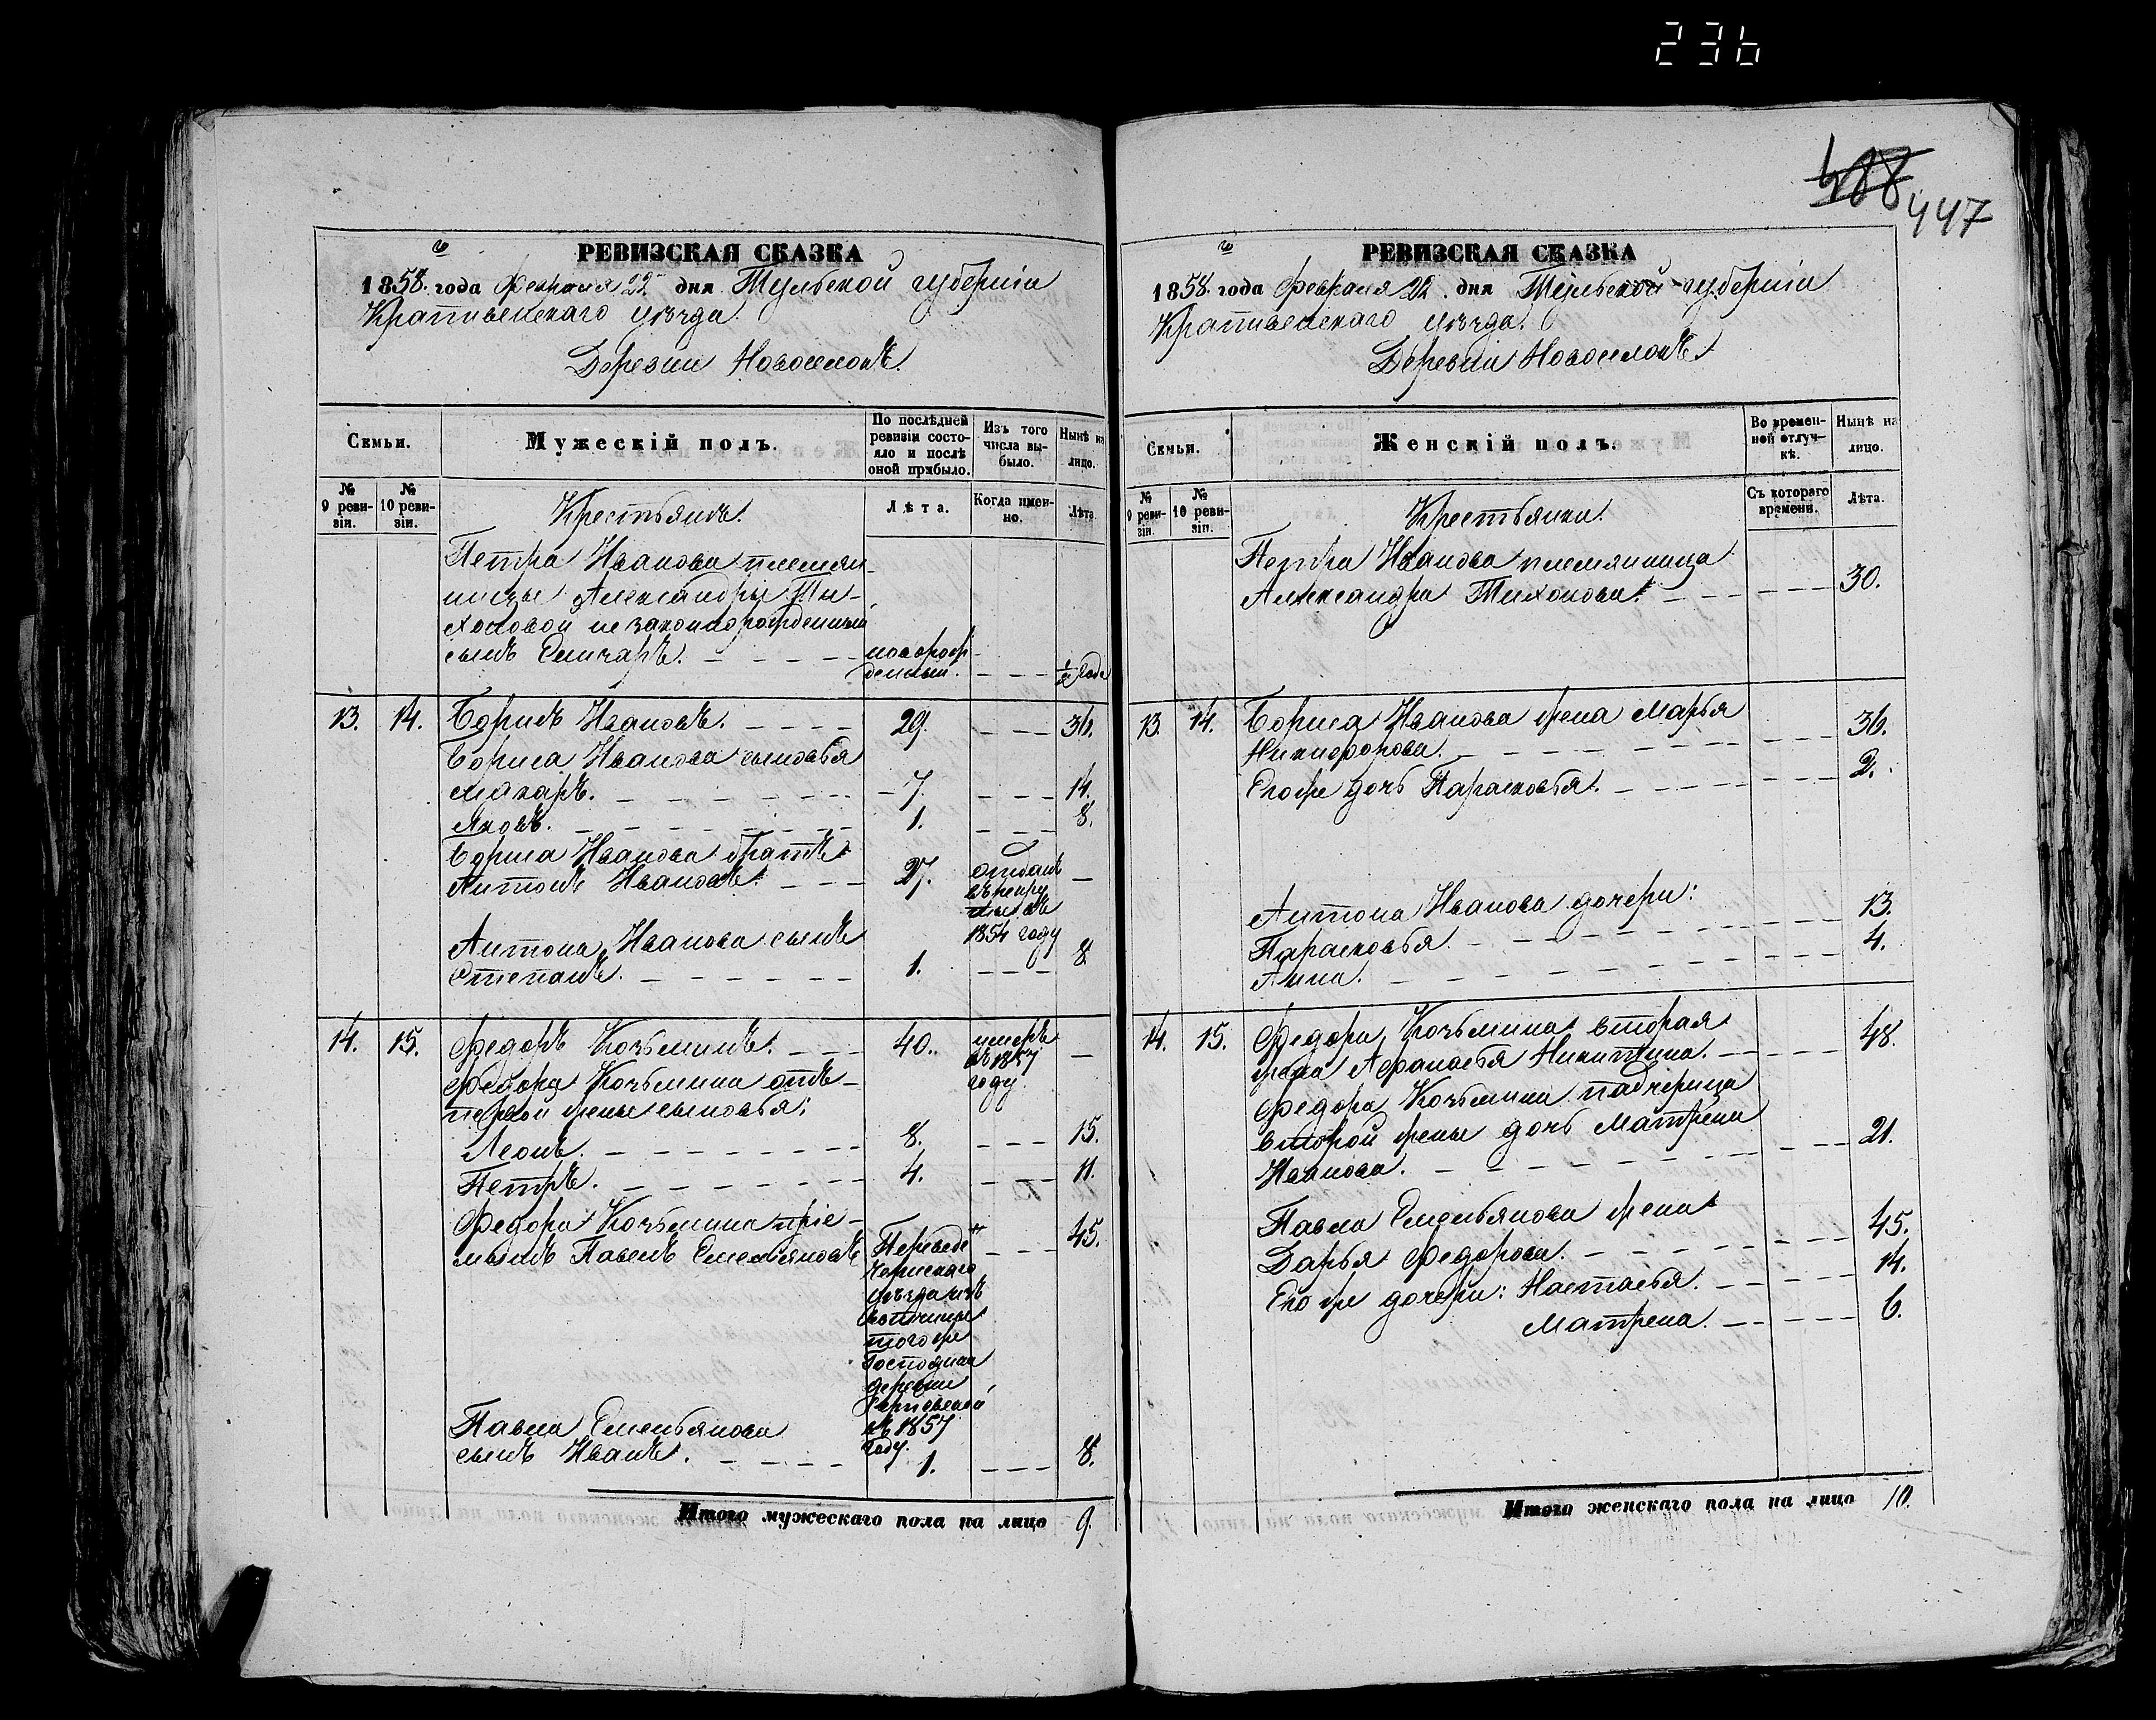 236
488
447
РЕВИЗСКАЯ СКАЗКА
1858. года Февраля 22 дня Тульской губерніи
Крапивенскаго уѣзда.
Деревни Новоселокъ.
Семьи.
Мужескій полъ.
По послѣдней ревизіи состояло и послѣ оной прибыло.
Изъ того числа выбыло.
Нынѣ на лицо.
№ 9 ревизіи.
№ 10 ревизіи.
Крестьянъ.
Лѣта.
Когда именно.
Лѣта.
Петра Иванова племян-
ницы Александры Ти-
хоновой незаконнорожденный
сынъ Елизаръ. новорожденный. ½ года
13. 14. Борисъ Ивановъ. 29. 36.
Бориса Иванова сыновья
Макаръ. 7. 14.
Яковъ. 1. 8.
Бориса Иванова братъ
Антонъ Ивановъ. 27. отданъ въ рекруты въ 1854 году
Антона Иванова сынъ
Степанъ. 1. 8.
14. 15. Федоръ Козьминъ. 40. умеръ въ 1857 году.
Федора Козьмина отъ
первой жены сыновья:
Леонъ. 8. 15.
Петръ. 4. 11.
Федора Козьмина пріе-
мышъ Павелъ Емельяновъ 45.
Переведенъ
уѣзда изъ
вотчины
того же
Господина
деревни
въ 1857
году.
Павла Емельянова
сынъ Иванъ. 1. 8.
Итого мужескаго пола на лицо 9.
РЕВИЗСКАЯ СКАЗКА
1858. года Февраля 22. дня Тульской губерніи
Крапивенскаго уѣзда.
Деревни Новоселокъ.
Семьи.
Женскій полъ.
Во временной отлучкѣ.
Нынѣ на лицо.
№ 9 ревизіи.
№ 10 ревизіи.
Крестьянки.
Съ котораго времени.
Лѣта.
Петра Иванова племянница
Александра Тихонова. 30.
13. 14. Бориса Иванова жена Марья
Никифорова. 36.
Его же дочь Парасковья. 2.
Антона Иванова дочери:
Парасковья 13.
Анна. 4.
14. 15. Федора Козьмина вторая
жена Афанасья Никитина. 48.
Федора Козьмина падчерица
второй жены дочь Матрена
Иванова. 21.
Павла Емельянова жена
Дарья Федорова. 45.
Его же дочери: Настасья. 14.
Матрена. 6.
Итого женскаго пола на лицо 10.